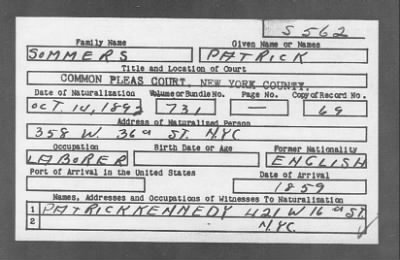 S 562
Family Name Given Name or Names
SOMMERS PATRICK
Title and Location of Court
COMMON PLEAS COURT, NEW YORK COUNTY.
Date of Naturalization Volume or Bundle No. Page No. Copy of Record No.
OCT. 14, 1892 731 — 69
Address of Naturalized Person
358 W. 36 ST. NYC
Occupation Birth Date or Age Former Nationality
LABORER ENGLISH
Port of Arrival in the United States Date of Arrival
1859
Names, Addresses and Occupations of Witnesses To Naturalization
1 PATRICK KENNEDY 421 W 16 ST.
2 NYC